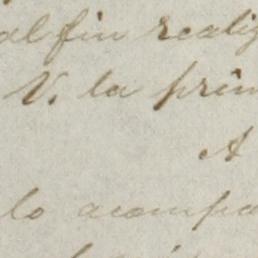 al fin realiz
V. la prim
A
lo acompa